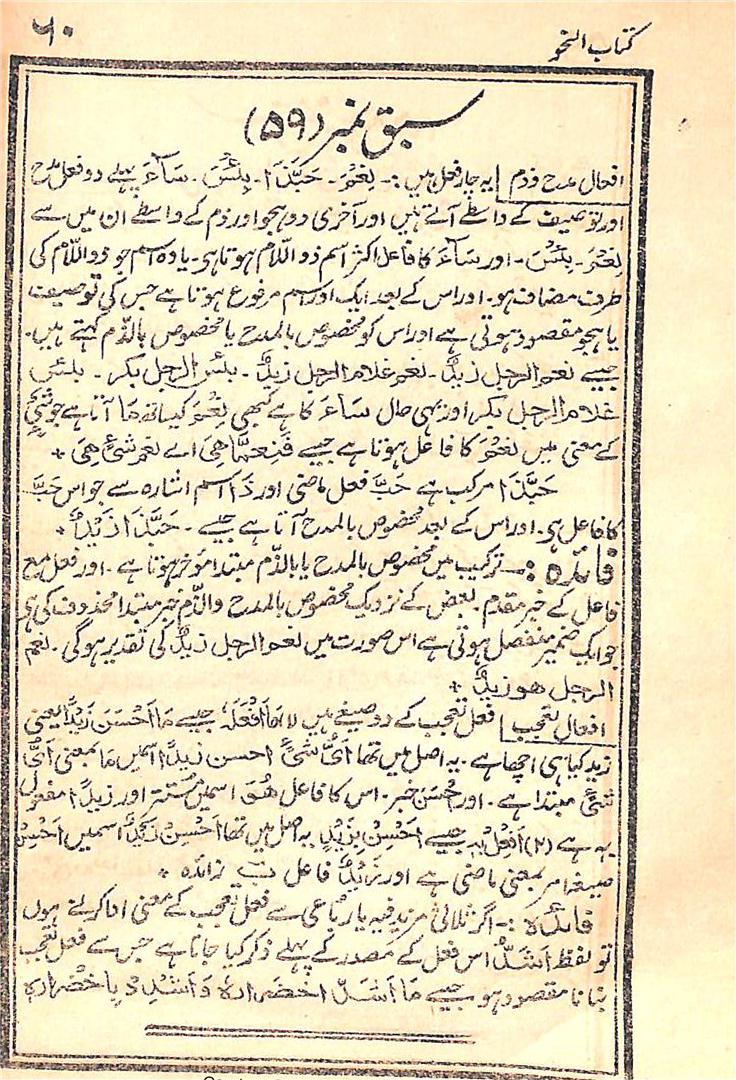 ۶۰
کتاب النحو
سبق نمبر (۵۹)
افعال مدح و ذم | یہ چار فعل ہیں :۔ نِعْمَ۔ حَبَّذَا۔ بِئْسَ۔ سَآءَ پہلے دو فعل مدح
اور توصیف کے واسطے آتے ہیں اور آخری دو ہجو اور ذم کے واسطے ان میں سے
نِعْمَ۔ بِئْسَ۔ اور سَآءَ کا فاعل اکثر اسم ذو اللّام ہوتا ہی۔ یا وہ اسم جو ذو اللّام کی
طرف مضاف ہو۔ اور اس کے بعد ایک اور اسم مرفوع ہوتا ہے جس کی توصیف
یا ہجو مقصود ہوتی ہے اور اس کو مخصوص بالمدح یا مخصوص بالذّم کہتے ہیں۔
جیسے نعم الرجل زیدٌ۔ نعم غلام الرجل زیدٌ۔ بئس الرجل بکر۔ بئس
غلام الرجل بکر اور یہی حال سَاءَ کا ہے کبھی نِعْمَ کیساتھ مَا آتا ہے جو شَیْءٌ
کے معنی میں نِعْمَ کا فاعل ہوتا ہے جیسے فَنِعِمَّا هِیَ اے نعم شیءٌ هِیَ *
حَبَّذَا مرکب ہے حَبَّ فعل ماضی اور ذَا اسم اشارہ سے جو اس حَبَّ
کا فاعل ہی۔ اور اس کے بعد مخصوص بالمدح آتا ہے جیسے۔ حَبَّذَا زَیْدٌ *
فائدہ :۔ ترکیب میں مخصوص بالمدح یا بالذّم مبتدا مؤخر ہوتا ہے۔ اور فعل مع
فاعل کے خبر مقدم۔ بعض کے نزدیک مخصوص بالمدح والذّم خبر مبتدا محذوف کی ہی
جو ایک ضمیر منفصل ہوتی ہے اس صورت میں نعم الرجل زیدٌ کی تقدیر ہوگی۔ نعم
الرجل هو زیدٌ *
افعال تعجب | فعل تعجب کے دو صیغے ہیں (۱) مَا اَفْعَلَهٗ جیسے مَا اَحْسَنَ زَیْدًا یعنی
زید کیا ہی اچھا ہے۔ یہ اصل میں تھا اَیُّ شَیْءٍ احسن زیدًا اسمیں مَا بمعنی اَیُّ
شَیْءٍ مبتدا ہے۔ اور اَحْسَنَ خبر۔ اس کا فاعل هُوَ اسمیں مُستتر اور زیدًا مفعول
بہ ہے (۲) اَفْعِلْ بِهٖ جیسے اَحْسِنْ بِزَیْدٍ یہ اصل میں تھا اَحْسِنْ زَیْدٌ اسمیں اَحْسِنْ
صیغہ امر بمعنی ماضی ہے اور زَیْدٌ فاعل بِ زائدہ *
فائدہ :۔ اگر ثلاثی مزید فیہ یا رباعی سے فعل تعجب کے معنی ادا کرنے ہوں
تو لفظ اَشَدُّ اس فعل کے مصدر کے پہلے ذکر کیا جاتا ہے جس سے فعل تعجب
بنانا مقصود ہو جیسے مَا اَشَدَّ اخضرارہٗ وَ اَشْدِدْ بِاخْضِرَارِہٖ